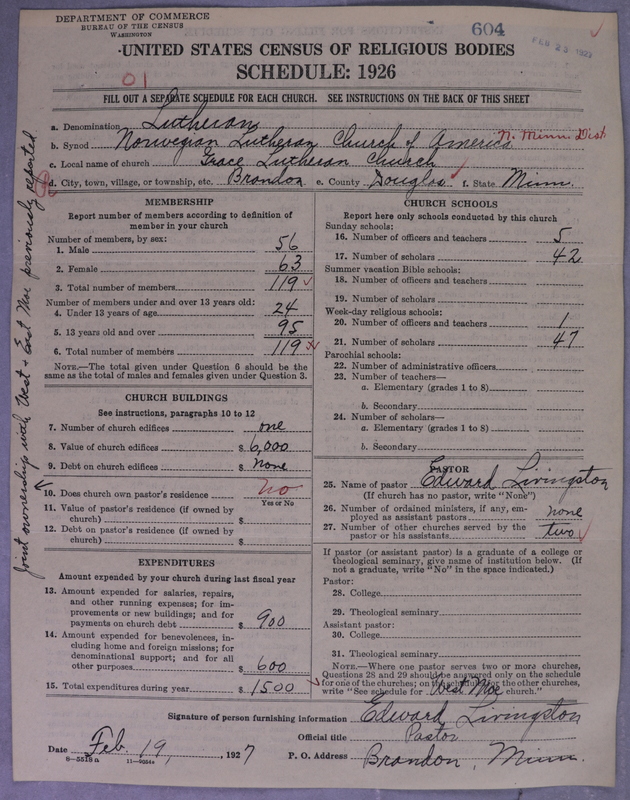 DEPARTMENT OF COMMERCE
BUREAU OF THE CENSUS
WASHINGTON
604
FEB 23 1927
UNITED STATES CENSUS OF RELIGIOUS BODIES
SCHEDULE: 1926
01
FILL OUT A SEPARATE SCHEDULE FOR EACH CHURCH. SEE INSTRUCTIONS ON THE BACK OF THIS SHEET
a. Denomination Lutheran
b. Synod Norwegian Lutheran Church of America N. Minn. Dist.
c. Local name of church Grace Lutheran Church
d. City, town, village, or township, etc. Brandon e. County Douglas f. State Minn.
Joint ownership with West + East Moe previously reported
MEMBERSHIP
Report number of members according to definition of
member in your church
Number of members, by sex:
1. Male 56
2. Female 63
3. Total number of members 119
Number of members under and over 13 years old:
4. Under 13 years of age 24
5. 13 years old and over 95
6. Total number of members 119
NOTE.—The total given under Question 6 should be
same as the total of males and females given under Question 3.
CHURCH BUILDINGS
See instructions, paragraphs 10 to 12
7. Number of church edifices one
8. Value of church edifices $ 6,000
9. Debt on church edifices $ none
10. Does church own pastor's residence no
Yes or No
11. Value of pastor's residence (if owned by
church) $
12. Debt on pastor's residence (if owned by
church) $
EXPENDITURES
Amount expended by your church during last fiscal year
13. Amount expended for salaries, repairs,
and other running expenses; for im-
provements or new buildings; and for
payments on church debt $ 900
14. Amount expended for benevolences, in-
cluding home and foreign missions; for
denominational support; and for all
other purposes $ 600
15. Total expenditures during year $ 1500
CHURCH SCHOOLS
Report here only schools conducted by this church
Sunday schools:
16. Number of officers and teachers 5
17. Number of scholars 42
Summer vacation Bible schools:
18. Number of officers and teachers
19. Number of scholars
Week-day religious schools:
20. Number of officers and teachers 1
21. Number of scholars 47
Parochial schools:
22. Number of administrative officers
23. Number of teachers—
a. Elementary (grades 1 to 8)
b. Secondary
24. Number of scholars—
a. Elementary (grades 1 to 8)
b. Secondary
PASTOR
25. Name of pastor Edward Livingston
(If church has no pastor, write "None")
26. Number of ordained ministers, if any, em-
ployed as assistant pastors none
27. Number of other churches served by the
pastor or his assistants two
If pastor (or assistant pastor) is a graduate of a college or
theological seminary, give name of institution below. (If
not a graduate, write "No" in the space indicated.)
Pastor:
28. College
29. Theological seminary
Assistant pastor:
30. College
31. Theological seminary
NOTE.—Where one pastor serves two or more churches,
Questions 28 and 29 should be answered only on the schedule
for one of the churches; on the schedules for the other churches,
write "See schedule for West Moe church."
Signature of person furnishing information Edward Livingston
Official title Pastor
Date Feb. 19, 1927 P. O. Address Brandon, Minn.